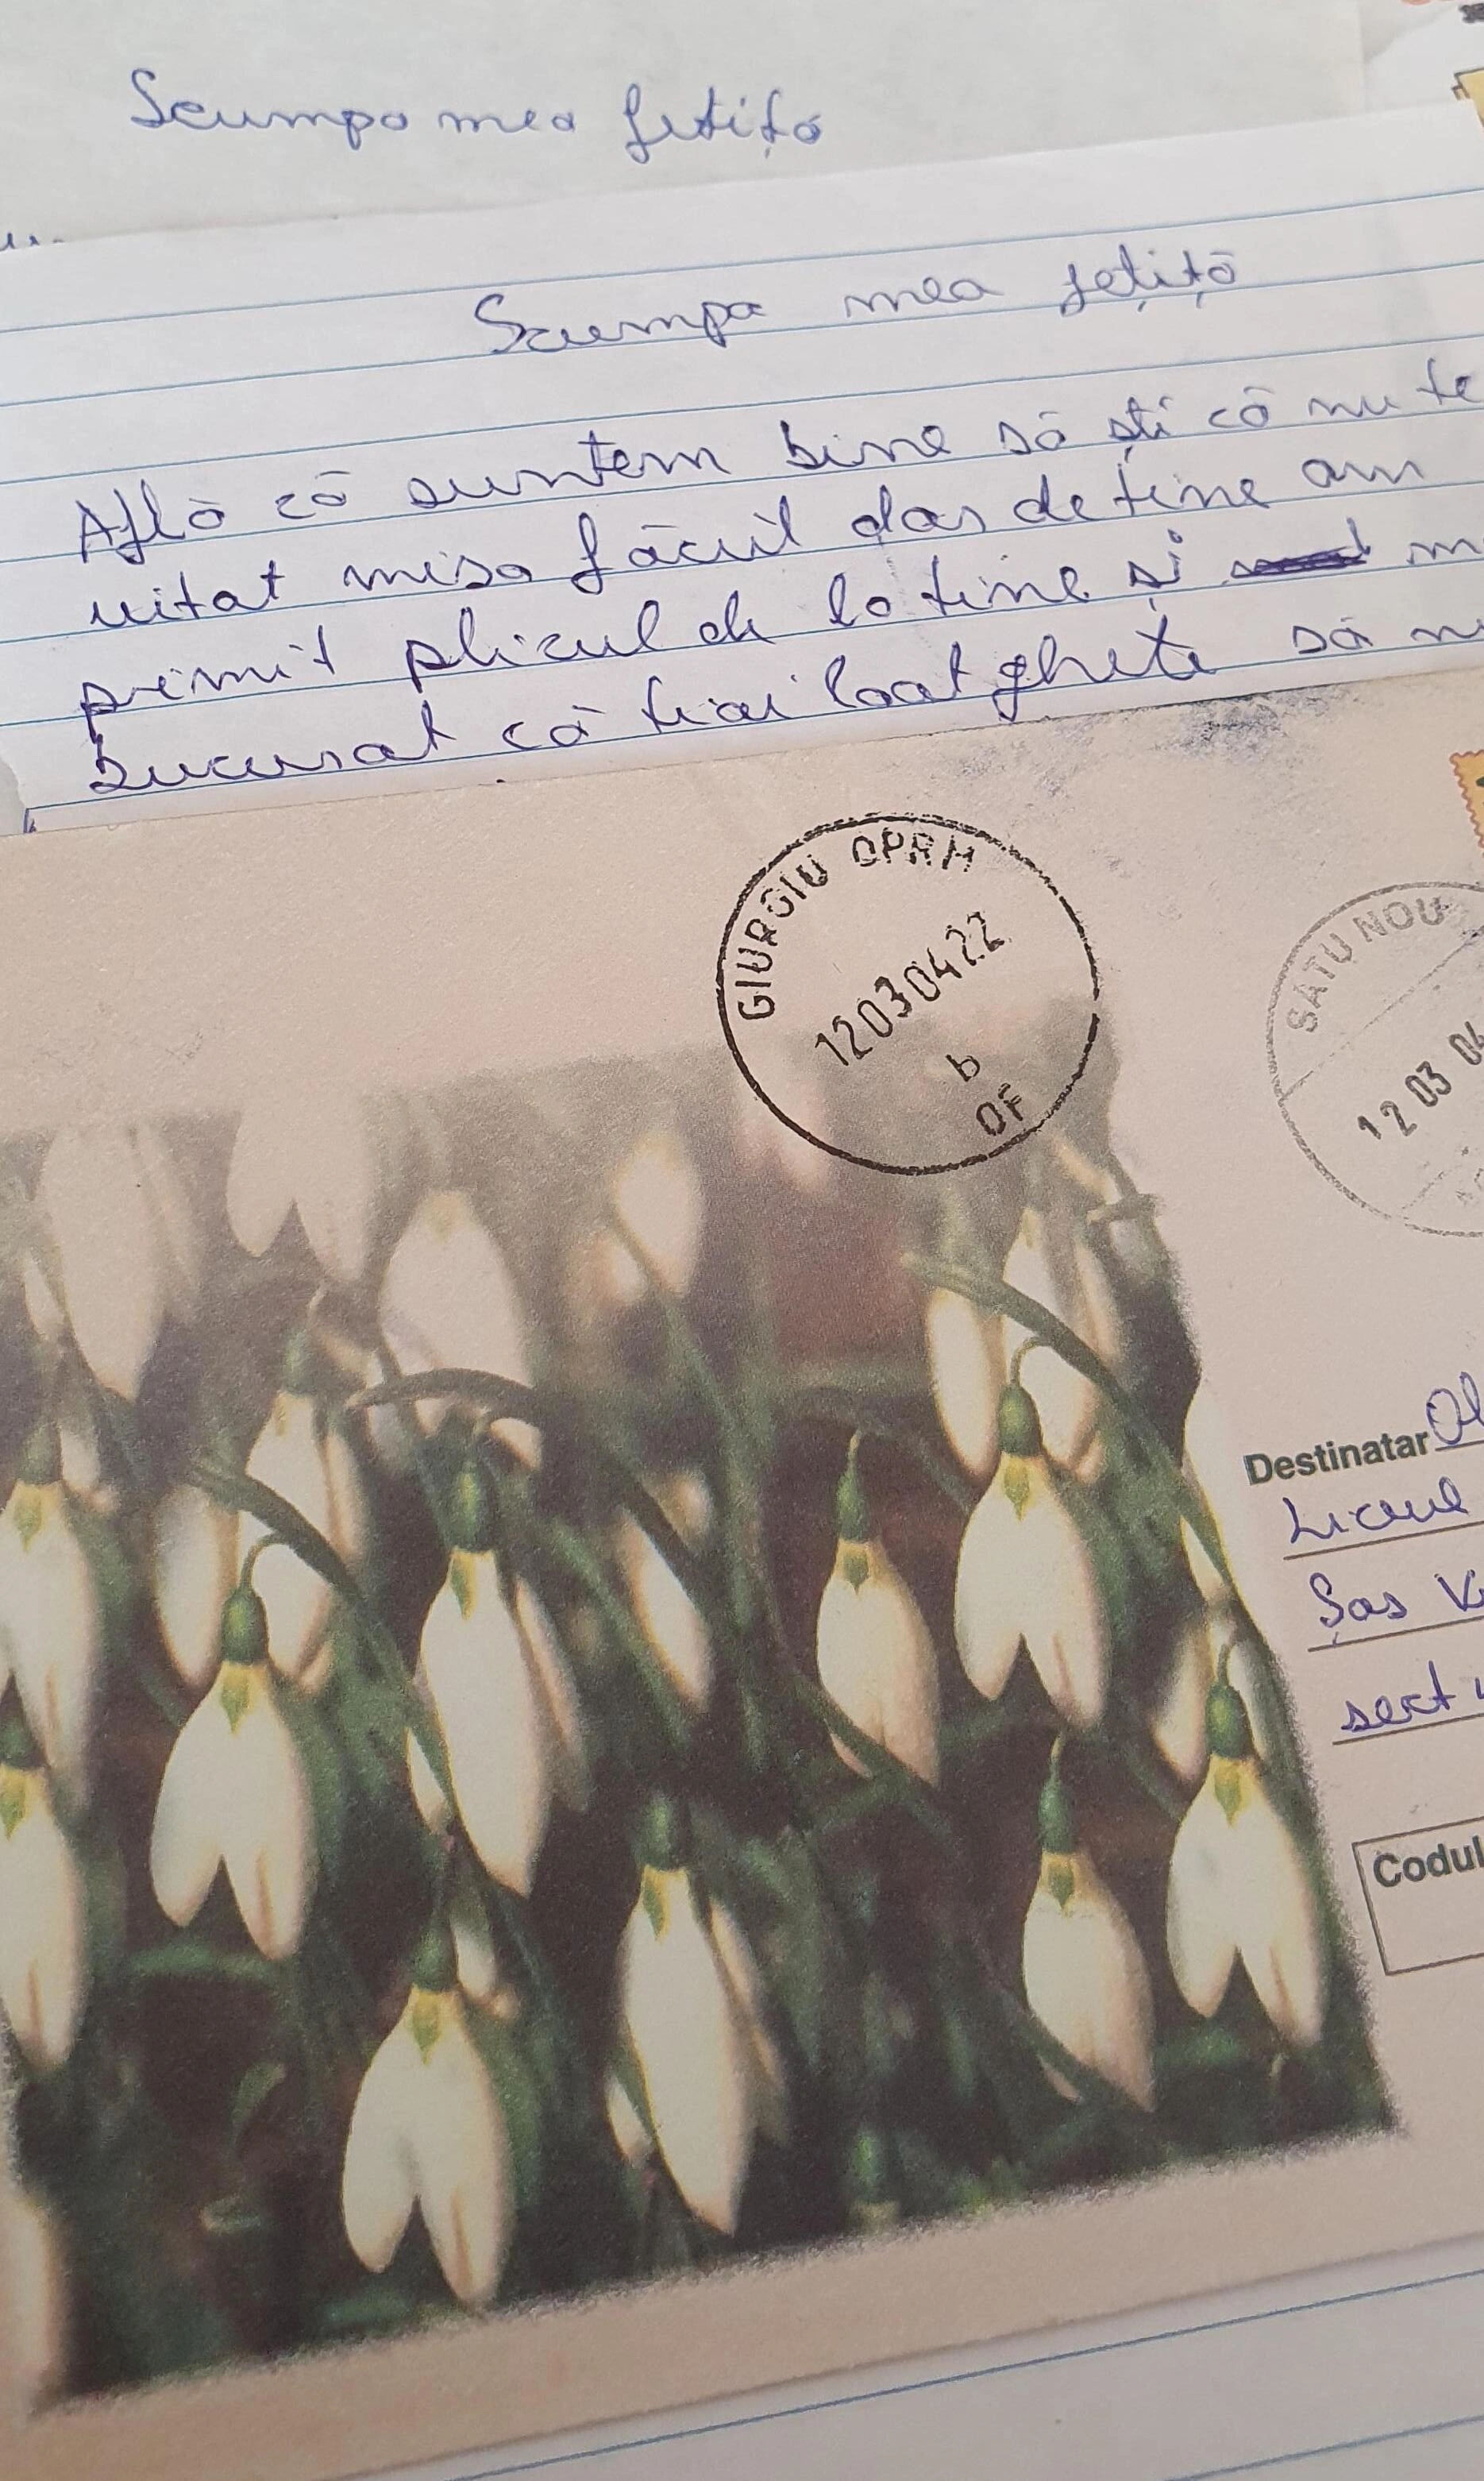 Scumpa mea fetiță
Scumpa mea fețiță
Află că suntem bine să ști că nu te
uitat misa făcut dor de tine am
primit plicul de la tine și
bucurat că tiai loat ghete să
GIURGIU OPRM
12030422
b
OF
SATU NOU
12 03 04
Destinatar
Liceul
Șos
sect
Codul